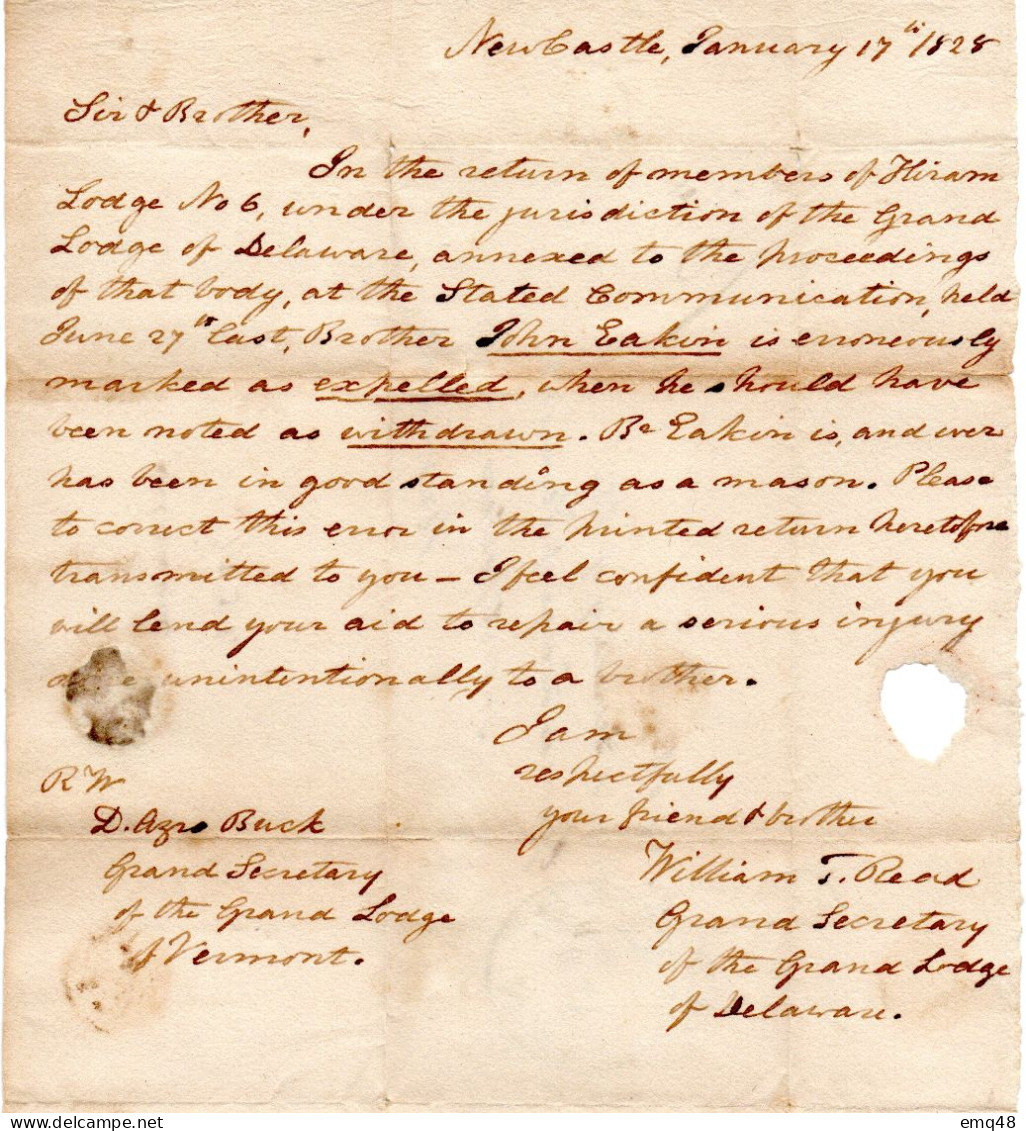 NewCastle, January 17th 1828
Sir & Brother,
In the return of members of Hiram
Lodge No 6, under the jurisdiction of the Grand
Lodge of Delaware, annexed to the proceedings
of that body, at the Stated Communication, held
June 27th last, Brother John Eakin is erroneously
marked as expelled, when he should have
been noted as withdrawn. Br Eakin is, and ever
has been in good standing as a mason. Please
to correct this error in the printed return heretofore
transmitted to you — I feel confident that you
will lend your aid to repair a serious injury
unintentionally to a brother.
I am
respectfully
your friend & brother
William T. Read
Grand Secretary
of the Grand Lodge
of Delaware.
R W
D. Azro Buck
Grand Secretary
of the Grand Lodge
of Vermont.
delcampe.net
emq48